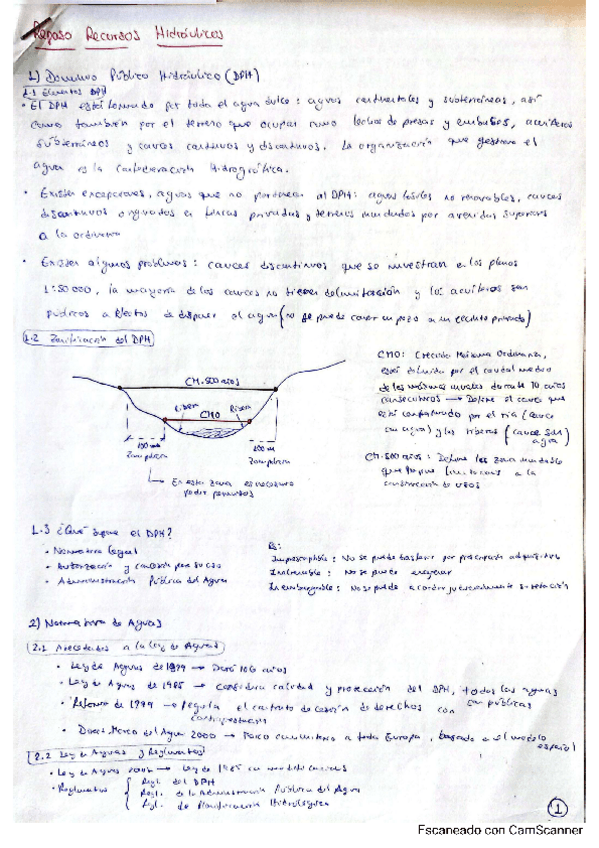 Repaso Recursos Hidráulicos
1) Dominio Público Hidráulico (DPH)
1.1 Elementos DPH
• El DPH está formado por toda el agua dulce: aguas continentales y subterráneas, así
como también por el terreno que ocupan como lechos de presas y embalses, acuíferos
subterráneos y cauces continuos y discontinuos. La organización que gestiona el
agua es la Confederación Hidrográfica.
• Existen excepciones, aguas que no pertenecen al DPH: aguas fósiles no renovables, cauces
discontinuos originados en fincas privadas y terrenos inundados por avenidas superiores
a la ordinaria
• Existen algunos problemas: cauces discontinuos que se muestran en los planos
1:50000, la mayoría de los cauces no tienen delimitación y los acuíferos son
públicos a efectos de disponer el agua (no se puede cavar un pozo a un recinto privado)
1.2 Zonificación del DPH
CM.500 años
Ribera
CMO
Ribera
100 m
Zona policía
100 m
Zona policía
En esta zona es necesario
pedir permisos
CMO: Crecida Máxima Ordinaria,
está definida por el caudal medio
de los máximos anuales durante 10 años
consecutivos → Define el cauce que
está conformado por el río (cauce
con agua) y las riberas (cauce sin
agua)
CM.500 años: Define la zona inundable
que impone limitaciones a la
construcción de usos
1.3 ¿Qué supone el DPH?
• Normativa legal
• Autorización y concesión para su uso
• Administración Pública del Agua
Es:
Imprescriptible: No se puede by prescripción adquisitiva
Inalienable: No se puede enajenar
Inembargable: No se puede
2) Normativa de Aguas
2.1 Antecedentes a la Ley de Aguas
• Ley de Aguas de 1879 → Duró 106 años
• Ley de Aguas de 1985 → Considera calidad y protección del DPH, todas las aguas
son públicas
• Reforma de 1999 → regula el contrato de cesión de derechos con
contraprestación
• Direct. Marco del Agua 2000 → Marco comunitario a toda Europa, basado en el modelo
español
2.2 Ley de Aguas y Reglamentos
• Ley de Aguas 2001 → Ley de 1985 con modificaciones
• Reglamentos
Regl. del DPH
Regl. de la Administración Pública del Agua
Regl. de Planificación Hidrológica
1
Escaneado con CamScanner